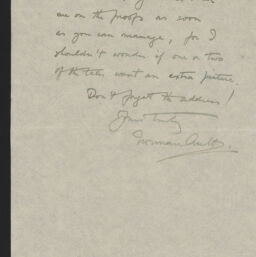 me on the proofs as soon
as you can manage, for I
shouldn't wonder if one or two
of the want an extra picture.
Don't forget the address!
Yours truly
Norman Ault.